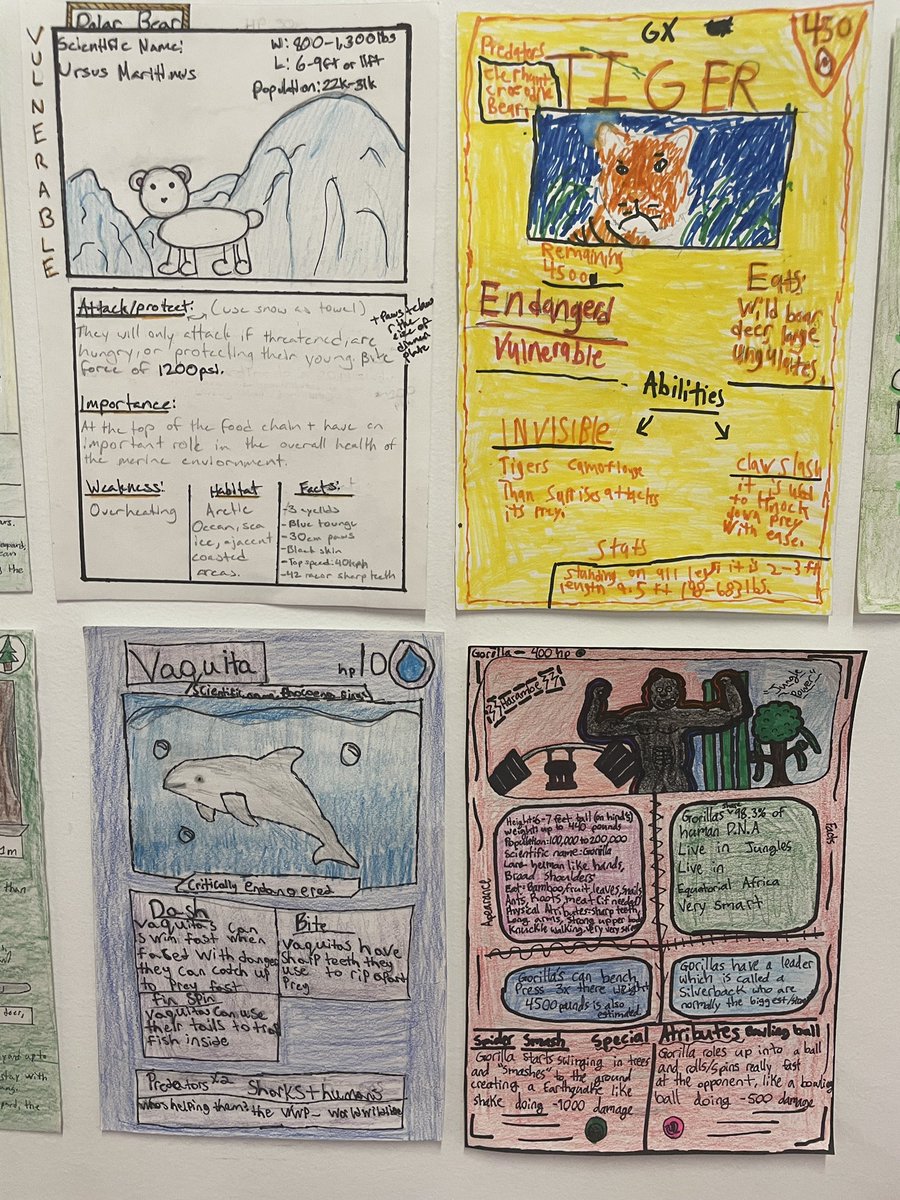 Polar Bear
VULNERABLE
Scientific Name:
Ursus Maritimus
W: 800-1,300lbs
L: 6-9ft or 11ft
Population: 22k-31k
Attack/protect: (use snow as towel)
They will only attack if threatened, are
hungry, or protecting their young. Bite
force of 1200psi.
+ Paws + claws
r the
size of
dinner
plate
Importance:
At the top of the food chain + have an
important role in the overall health of
the marine enviornment.
Weakness:
Overheating
Habitat
Arctic
Ocean, sea
ice, ajacent
coasted
areas.
Facts:
-3 eyelids
-Blue tounge
-30cm paws
-Black skin
-Top speed: 40kph
-42 razor sharp teeth
GX
450
Predators
Elephant
crocodile
Bear
TIGER
Remaining
4500
Endangerd
Vulnerable
Eats:
Wild boar
deer, large
Ungulates
Abilities
INVISIBLE
Tigers Camoflouge
Than Suprises attacks
its prey.
claw slash
it is used
to Knock
down prey
With ease.
Stats
Standing on all legs it is 2-3 ft
length 9.5 ft 198-683 lbs.
Vaquita
hp 10
Scientific name Phocoena Sinus
Critically endangered
Dash
Vaquitas can
swim fast when
faSed with danger
they can catch up
to Prey fast
Bite
Vaquitas have
sharp teeth they
use to rip apart
Prey
Fin Spin
Vaquitas can use
their tails to trap
fish inside
Predators x2 Sharks + humans
Who's helping them? the WWP- World Wildlife
Gorilla - 400 hp
Harambe
"Jungle
Power"
Apearance
Height: 6-7 feet tall (on hinds)
weight: up to 440 pounds
Population: 100,000 to 200,000
Scientific name: Gorilla
Looks- helman like hands,
Broad Shoulders
Eat: Bamboo, fruit, leaves, Snails
Ants, Roots, meat (if needed)
Physical Atributes: sharp teeth,
Long arms, Strong upper body
Knuckle walking, very very strong
Facts
Gorillas share 98.3% of
human D.N.A
Live in Jungles
Live in
Equatorial Africa
Very Smart
Gorilla's can bench
Press 3x there weight
4500 punds is also
estimated.
Gorillas have a leader
which is called a
Silverback who are
normally the biggest/strong
Spider Smash Special Atributes Bowling ball
Gorilla starts swinging in trees
and "Smashes" to the ground
creating a Earthquake like
shake doing -1000 damage
Gorilla roles up into a ball
and rolls/spins really fast
at the opponent, like a bowling
ball doing -500 damage
1m
than